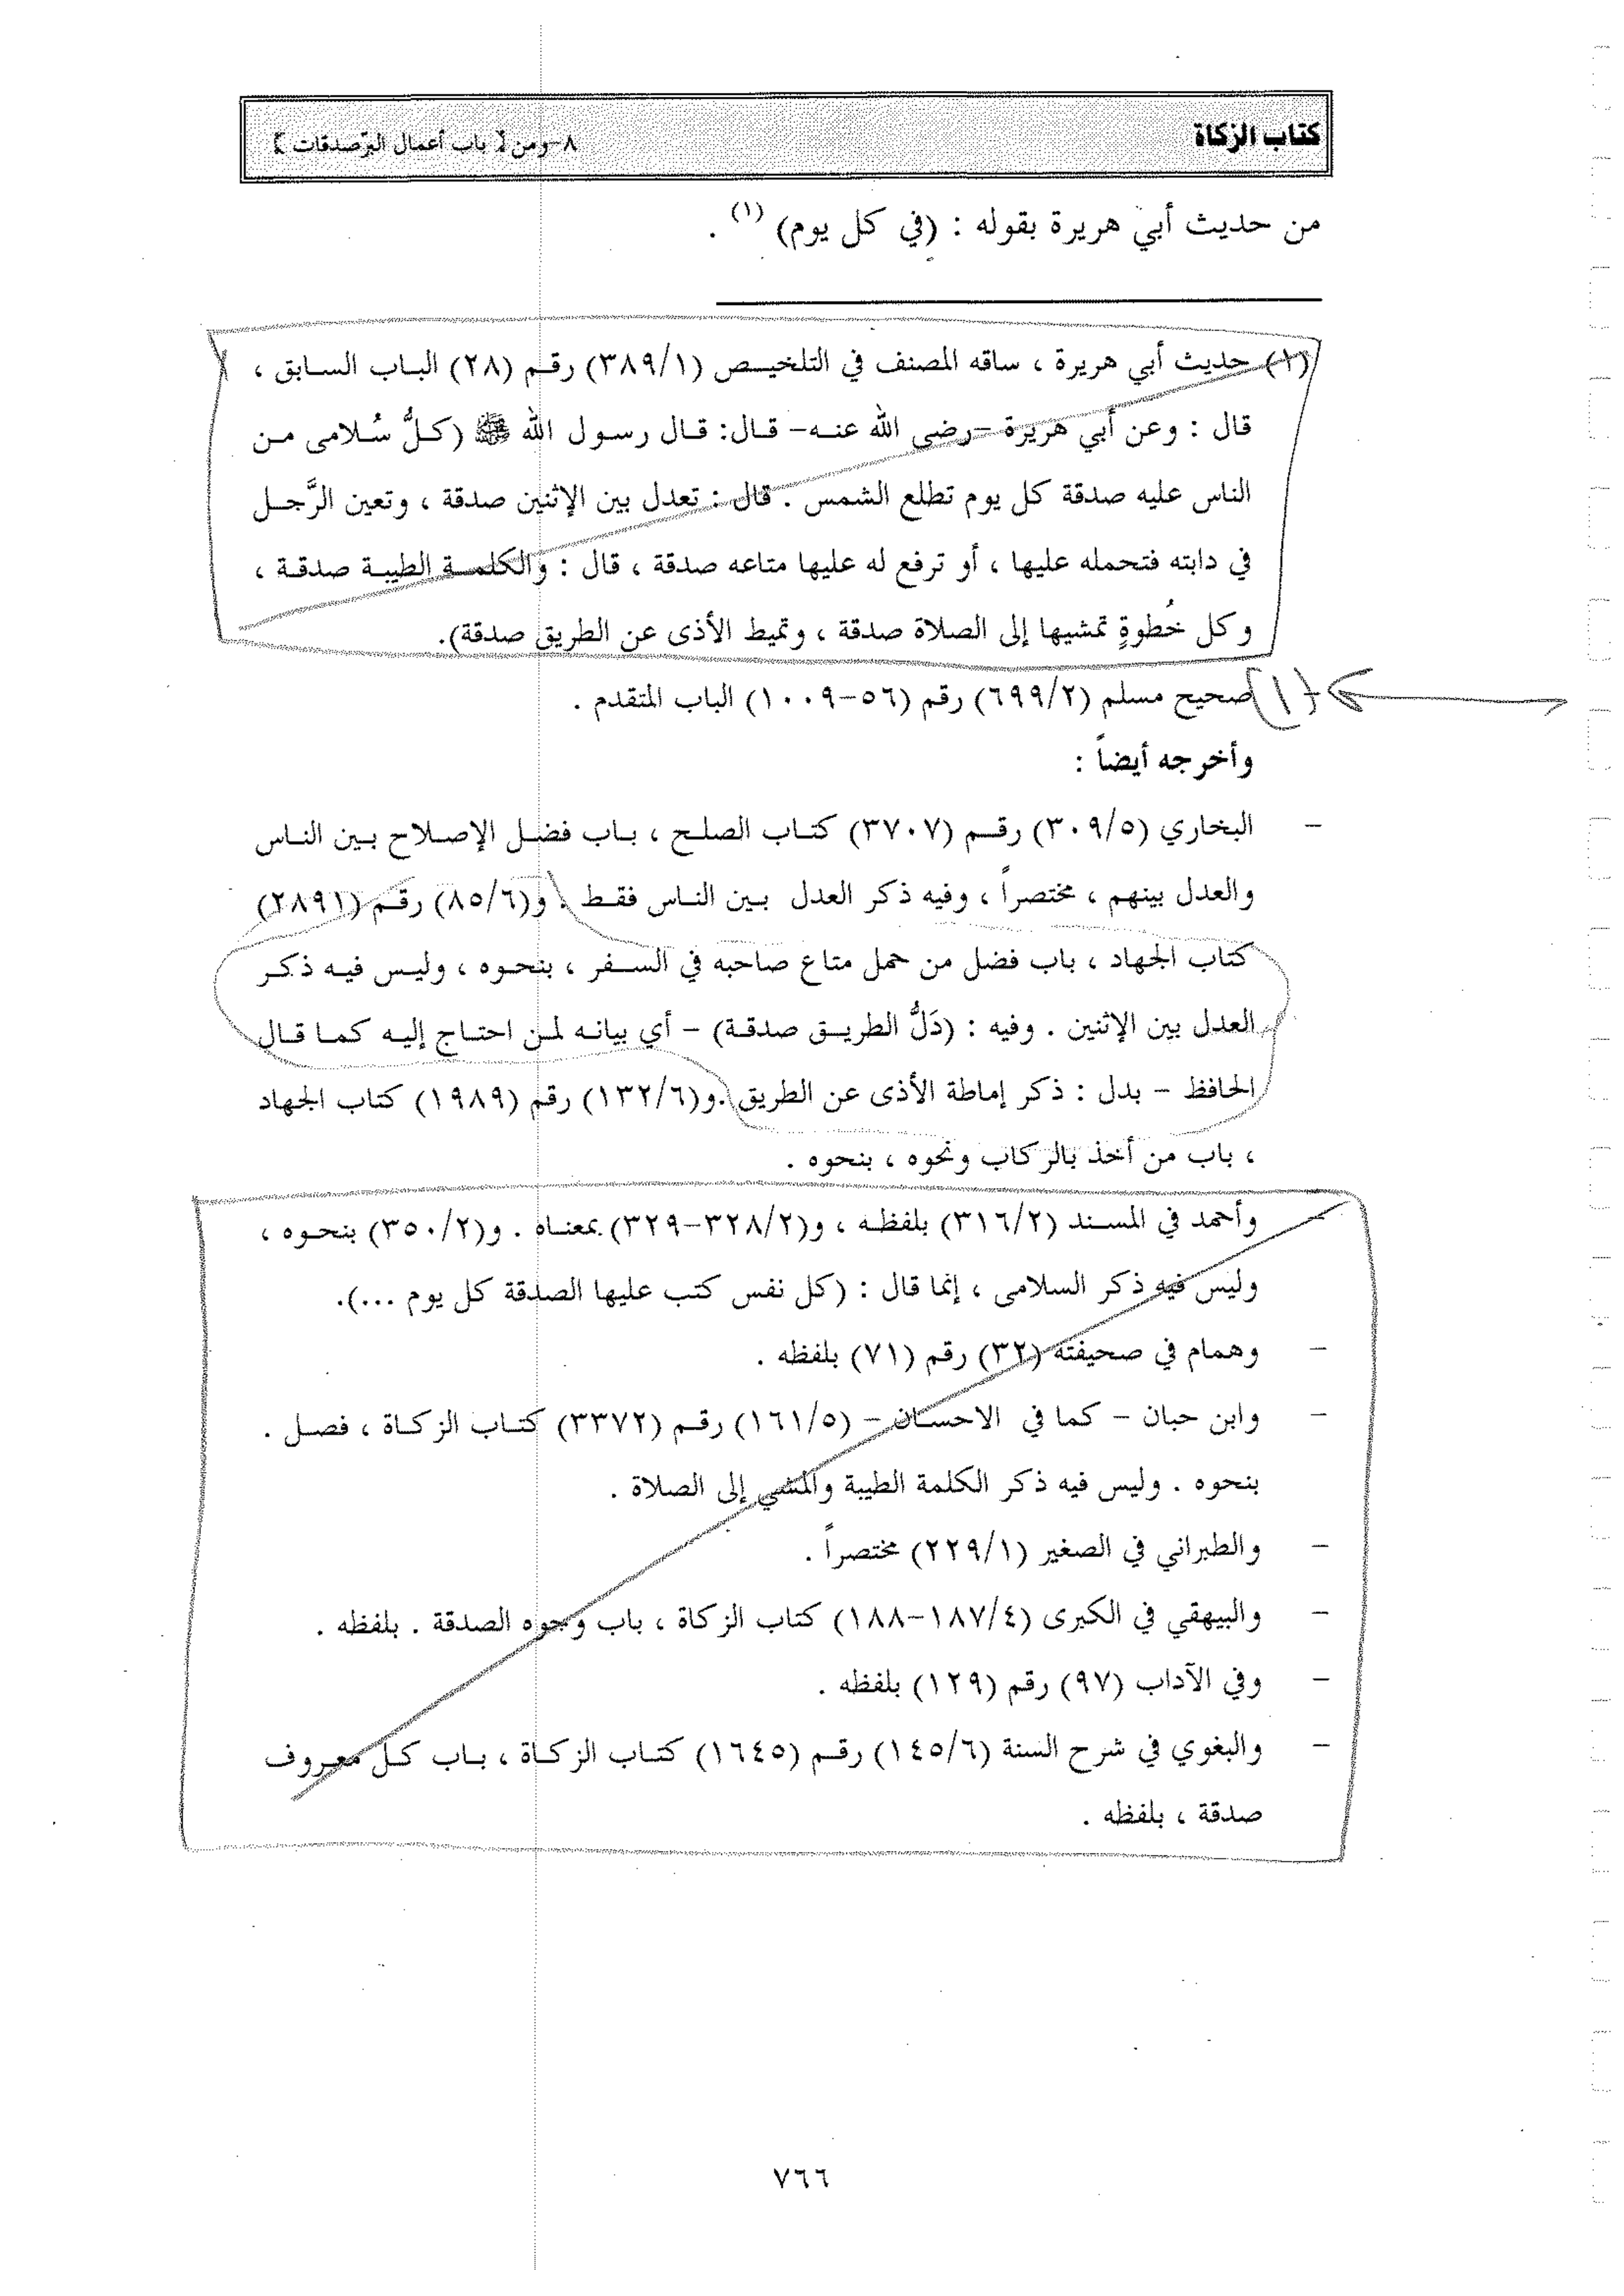 كتاب الزكاة
٨-ومن [ باب أعمال البر صدقات ]
من حديث أبي هريرة بقوله : (في كل يوم) (١) .
(١) حديث أبي هريرة ، ساقه المصنف في التلخيـص (٣٨٩/١) رقـم (٢٨) البـاب السـابق ،
قال : وعن أبي هريرة -رضي الله عنـه- قـال: قـال رسـول الله ﷺ (كـلُّ سُـلامى مـن
الناس عليه صدقة كل يوم تطلع الشمس . قال : تعدل بين الإثنين صدقة ، وتعين الرَّجـل
في دابته فتحمله عليها ، أو ترفع له عليها متاعه صدقة ، قال : والكلمـة الطيبـة صدقـة ،
وكل خُطوةٍ تمشيها إلى الصلاة صدقة ، وتميط الأذى عن الطريق صدقة).
(١) صحيح مسلم (٦٩٩/٢) رقم (٥٦-١٠٠٩) الباب المتقدم .
وأخرجه أيضاً :
- البخاري (٣٠٩/٥) رقــم (٣٧٠٧) كتـاب الصلـح ، بـاب فضـل الإصـلاح بـين النـاس
والعدل بينهم ، مختصراً ، وفيه ذكر العدل بـين النـاس فقـط . و(٨٥/٦) رقـم (٢٨٩١)
كتاب الجهاد ، باب فضل من حمل متاع صاحبه في السـفر ، بنحـوه ، وليـس فيـه ذكـر
العدل بين الإثنين . وفيه : (دَلُّ الطريـق صدقـة) - أي بيانـه لمـن احتـاج إليـه كمـا قـال
الحافظ - بدل : ذكر إماطة الأذى عن الطريق .و(١٣٢/٦) رقم (١٩٨٩) كتاب الجهاد
، باب من أخذ بالركاب ونحوه ، بنحوه .
- وأحمد في المسـند (٣١٦/٢) بلفظـه ، و(٣٢٨/٢-٣٢٩) بمعنـاه . و(٣٥٠/٢) بنحـوه ،
وليس فيه ذكر السلامى ، إنما قال : (كل نفس كتب عليها الصدقة كل يوم ...).
- وهمام في صحيفته (٣٢) رقم (٧١) بلفظه .
- وابن حبان - كما في الاحسـان - (١٦١/٥) رقـم (٣٣٧٢) كتـاب الزكـاة ، فصـل .
بنحوه . وليس فيه ذكر الكلمة الطيبة والمشي إلى الصلاة .
- والطبراني في الصغير (٢٢٩/١) مختصراً .
- والبيهقي في الكبرى (١٨٧/٤-١٨٨) كتاب الزكاة ، باب وجوه الصدقة . بلفظه .
- وفي الآداب (٩٧) رقم (١٢٩) بلفظه .
- والبغوي في شرح السنة (١٤٥/٦) رقـم (١٦٤٥) كتـاب الزكـاة ، بـاب كـل معـروف
صدقة ، بلفظه .
٧٦٦